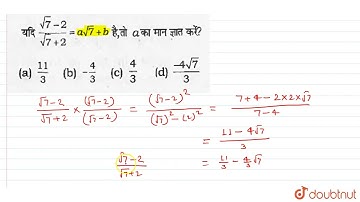 यदि (√7−2)/(√7+2) = a√7+b है,तो a का मान ज्ञात करें?
(a) 11/3 (b) -4/3 (c) 4/3 (d) -4√7/3
(√7-2)/(√7+2) × (√7-2)/(√7-2) = (√7-2)²/((√7)²-(2)²) = (7+4-2×2×√7)/(7-4)
= (11-4√7)/3
(√7-2)/(√7+2) = 11/3 - 4/3 √7
doubtnut